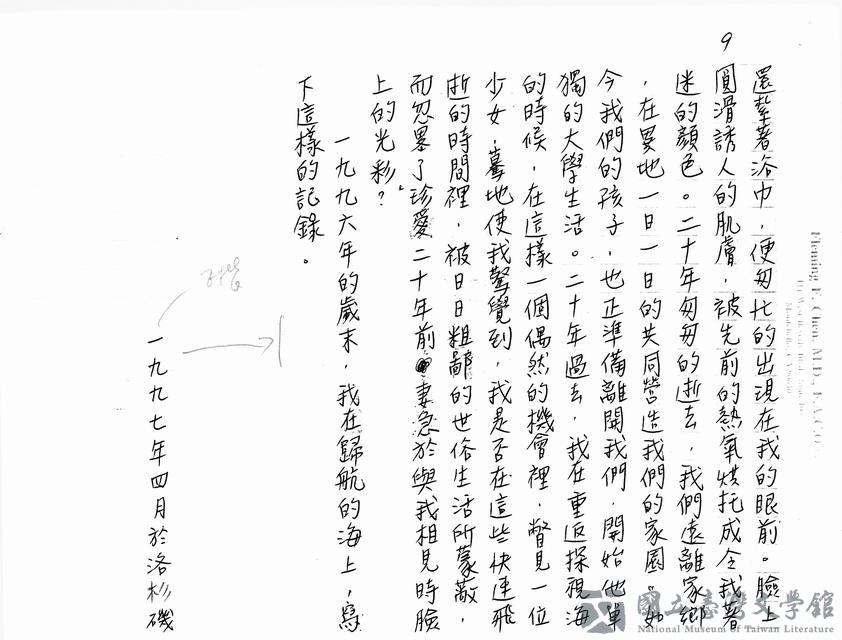 9
還紮著浴巾，便匆忙的出現在我的眼前。臉上
圓滑誘人的肌膚，被先前的熱氧烘托成令我著
迷的顏色。二十年匆匆的逝去，我們遠離家鄉
，在異地一日一日的共同營造我們的家園。如
今我們的孩子，也正準備離開我們，開始他單
獨的大學生活。二十年過去，我在重返探視海
的時候，在這樣一個偶然的機會裡，瞥見一位
少女，驀地使我驚覺到，我是否在這些快速飛
逝的時間裡，被日日粗鄙的世俗生活所蒙蔽，
而忽畧了珍愛二十年前妻急於與我相見時臉
上的光彩？
一九九六年的歲末，我在歸航的海上，寫
下這樣的記錄。
一九九七年四月於洛杉磯
Fleming F. Chen, M.D., F.A.C.O.
國立臺灣文學館
National Museum of Taiwan Literature